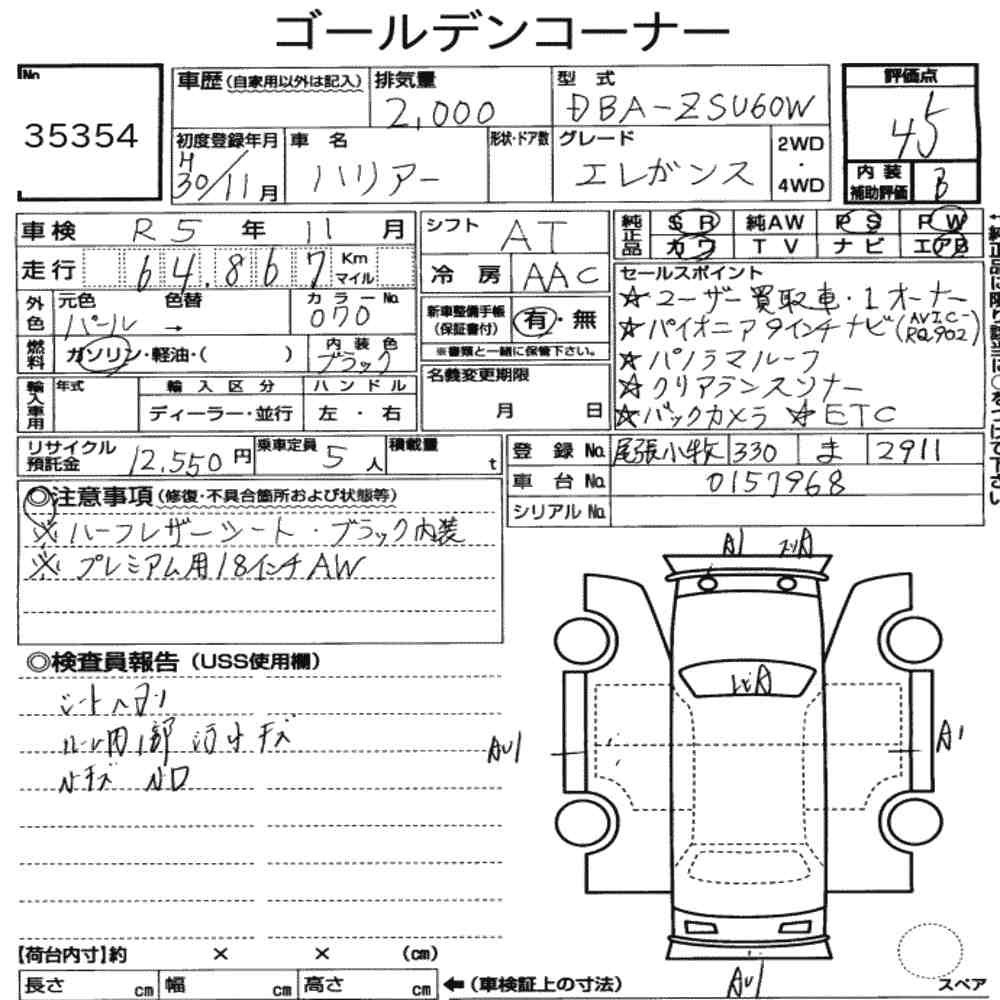 ゴールデンコーナー
No
35354
車歴(自家用以外は記入)
排気量
2,000
型 式
DBA-ZSU60W
評価点
45
初度登録年月
H
30/11月
車 名
ハリアー
形状・ドア数
グレード
エレガンス
2WD
・
4WD
内 装
補助評価
B
車検
R5 年 11 月
走行
64.867
Km
マイル
シフト
AT
冷 房
AAC
純正品
SR 純AW PS PW
カワ TV ナビ エアB
外色
元色
色替
パール →
カラーNo.
070
燃料
ガソリン・軽油・( )
内装色
ブラック
新車整備手帳
(保証書付)
有・無
※書類と一緒に保管下さい。
セールスポイント
☆ユーザー買取車・1オーナー
☆パイオニア9インチナビ(AVIC-RQ902)
☆パノラマルーフ
☆クリアランスソナー
☆バックカメラ ☆ETC
輸入車用
年式
輸入区分
ハンドル
ディーラー・並行
左 ・ 右
名義変更期限
月 日
リサイクル
預託金
12,550円
乗車定員
5人
積載量
t
登 録 No.
尾張小牧 330 ま 2911
車 台 No.
0157968
シリアル No.
◎注意事項(修復・不具合箇所および状態等)
※ハーフレザーシート・ブラック内装
※プレミアム用18インチAW
◎検査員報告(USS使用欄)
A1
A
AU1
A1
AU1
【荷台内寸】約 × × (cm)
長さ cm 幅 cm 高さ cm
←(車検証上の寸法)
スペア